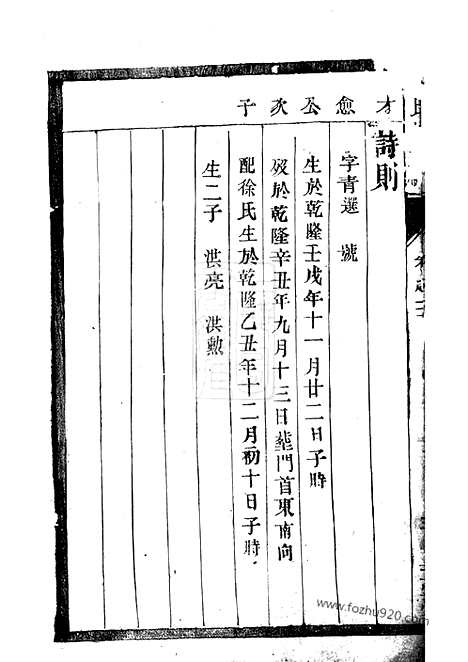 才愈公次子
詩則
字青選 號
生於乾隆壬戌年十一月廿二日子時
歿於乾隆辛丑年九月十三日葬門首東南向
配徐氏生於乾隆乙丑年十二月初十日子時
生二子 洪亮 洪勲
www.fozhu920.com